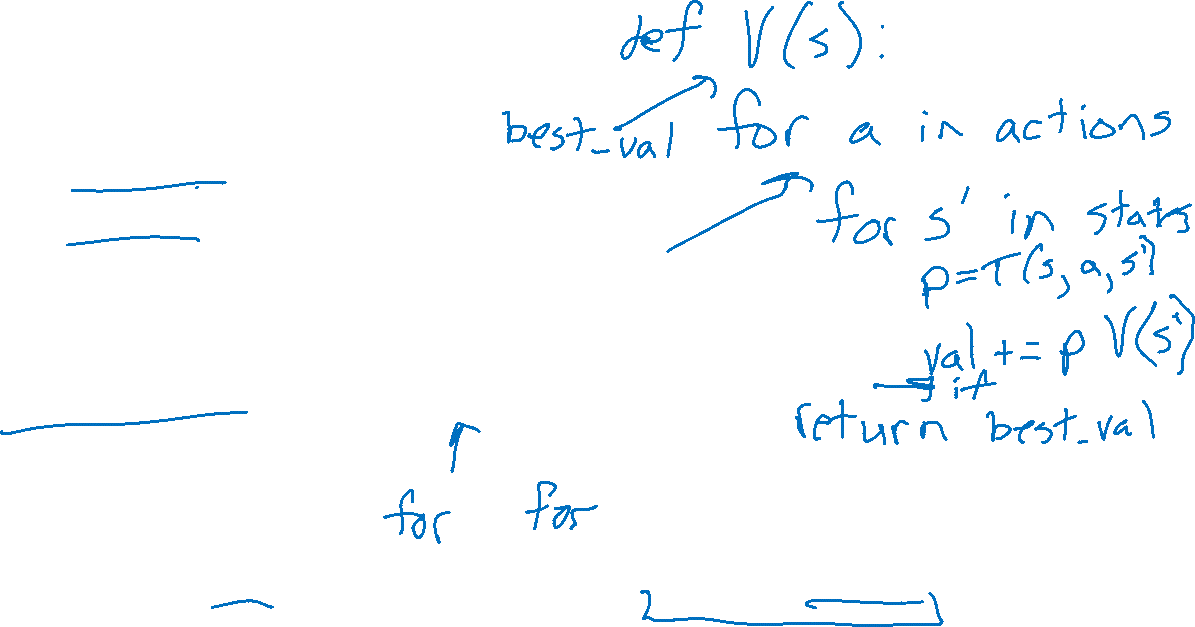 def V(s):
best_val for a in actions
for s' in states
p=T(s, a, s')
val += p V(s')
if
return best_val
for for